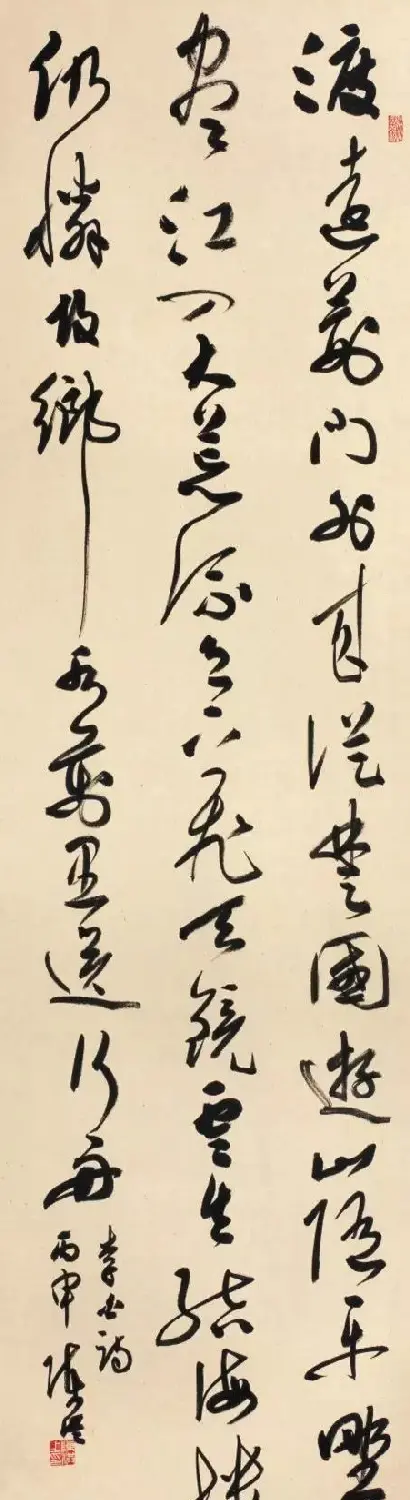 渡遠荊門外來從楚國遊山隨平野
盡江入大荒流月下飛天鏡雲生結海樓
仍憐故鄉水萬里送行舟
李白詩
丙申